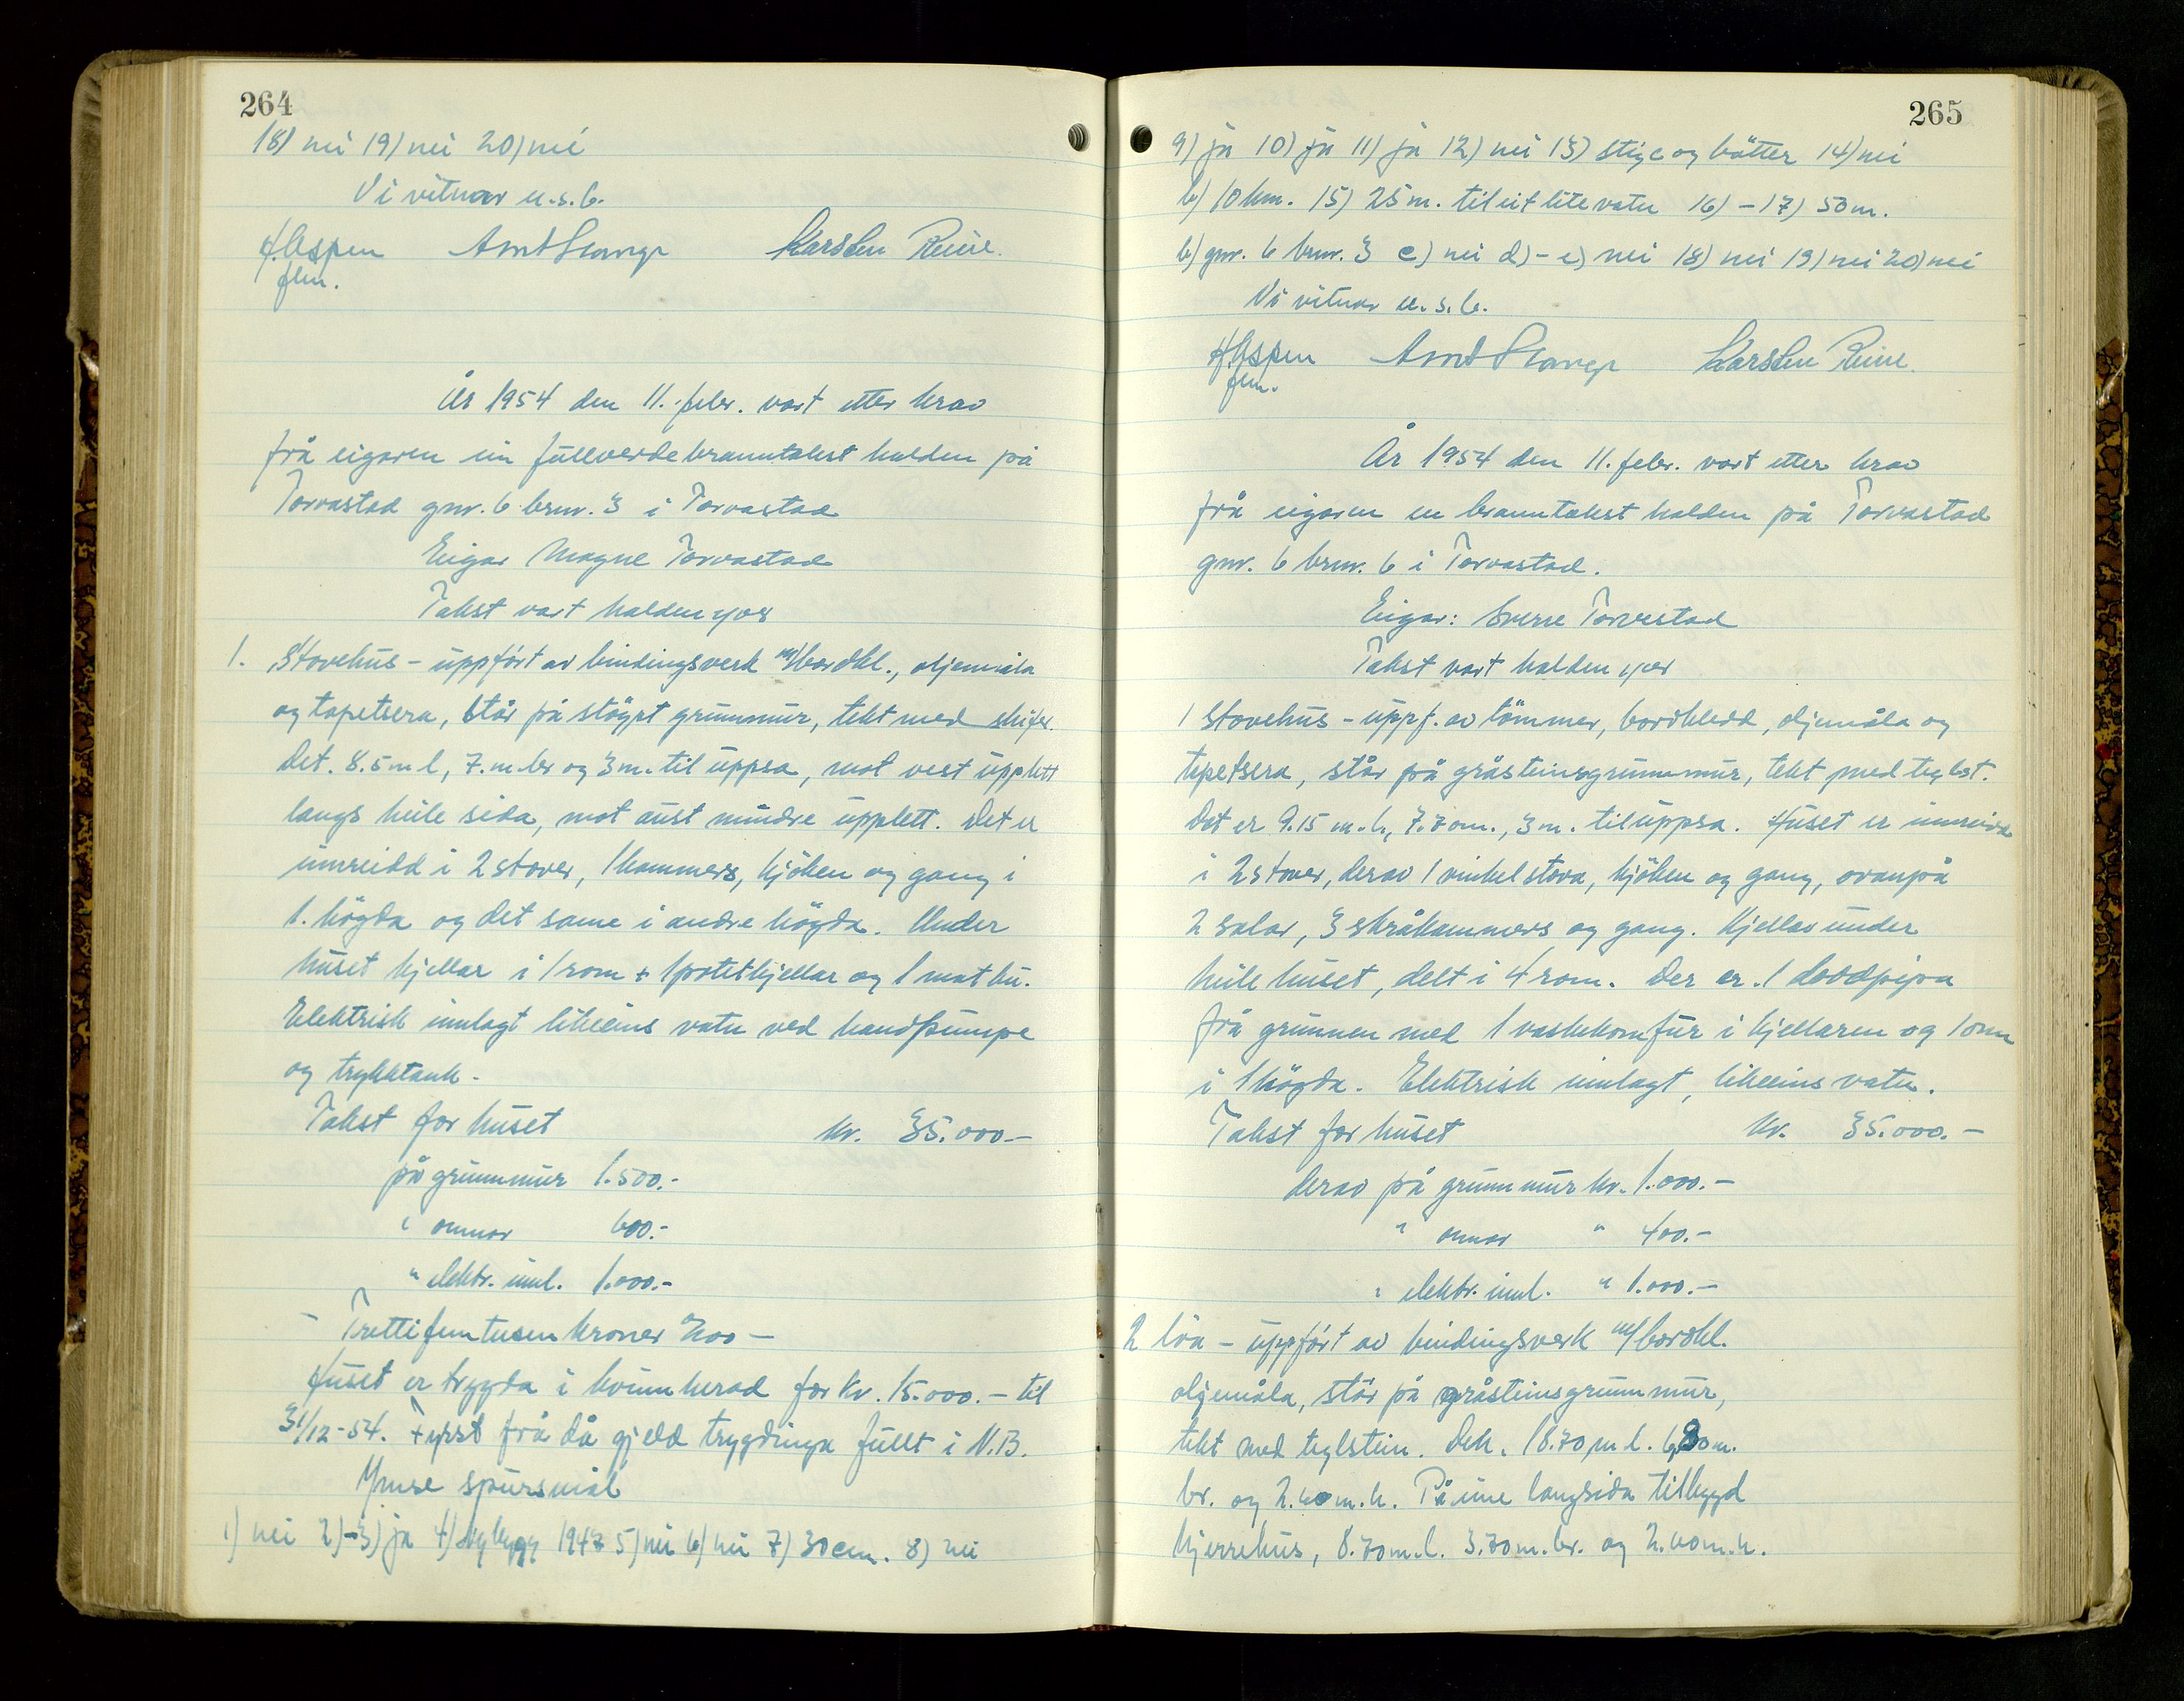 264
18) nei 19) nei 20) nei
Vi vitnar u.s.b.
H. Aspen Arnt Stange Karsten Reine.
flm.
År 1954 den 11. febr. vart etter krav
frå eigaren ein fullverdebranntakst halden på
Torvastad gnr. 6 brnr. 3 i Torvastad
Eigar Magne Torvastad
Takst vart halden yver
1. Stovehus - uppført av bindingsverk m/bordkl., oljemåla
og tapetsera, står på støypt grunnmur, tekt med skifer.
Det. 8.5 m l, 7. m. br og 3 m. til uppsa, mot vest upplett
langs heile sida, mot aust mindre upplett. Det er
innreidd i 2 stover, 1 kammers, kjøken og gang i
1. høgda og det same i andre høgda. Under
huset kjellar i 1 rom + 1 potetkjellar og 1 mat bu.
Elektrisk innlagt likeeins vatn ved handpumpe
og trykktank.
Takst for huset kr. 35.000.-
på grunnmur 1.500.-
" omnar 600.-
" elektr. innl. 1.000.-
- Trettifemtusen kroner %00 -
Huset er trygda i Kvinnherad for kr. 15.000.- til
31/12-54. Fyrst frå då gjeld trygdinga fullt i N.B.
Ymse spursmål
1) nei 2) - 3) ja 4) nybygg 1947 5) nei 6) nei 7) 30 cm. 8) nei
265
9) ja 10) ja 11) ja 12) nei 13) stige og bøtter 14) nei
b) 10 km. 15) 25 m. til eit lite vatn 16) - 17) 50 m.
b) gnr. 6 brnr. 3 c) nei d) - e) nei 18) nei 19) nei 20) nei
Vi vitnar u.s.b.
H. Aspen Arnt Stange Karsten Reine.
flm.
År 1954 den 11. febr. vart etter krav
frå eigaren en branntakst halden på Torvastad
gnr. 6 brnr. 6 i Torvastad.
Eigar: Sverre Torvestad
Takst vart halden yver
1 Stovehus - uppf. av tømmer, bordkledd, oljemåla og
tapetsera, står på gråsteinsgrunnmur, tekt med teglst.
Det er 9.15 m. l, 7.70 m., 3 m. til uppsa. Huset er innreidd
i 2 stover, derav 1 vinkelstova, kjøken og gang, ovanpå
2 salar, 3 skråkammers og gang. Kjellar under
heile huset, delt i 4 rom. Der er 1 loddpipa
frå grunnen med 1 vaskekomfur i kjellaren og 1 omn
i 1 høgda. Elektrisk innlagt, likeeins vatn.
Takst for huset kr. 35.000.-
derav på grunnmur kr. 1.000.-
" omnar " 400.-
" elektr. innl. " 1.000.-
2 løa - uppført av bindingsverk m/bordkl.
oljemåla, står på gråsteinsgrunnmur,
tekt med teglstein. Den. 18.70 m l. 6,80 m.
br. og 2.60 m. h. På eine langsida tilbygd
kjerrehus, 8.70 m. l. 3.70 m. br. og 2.60 m. h.